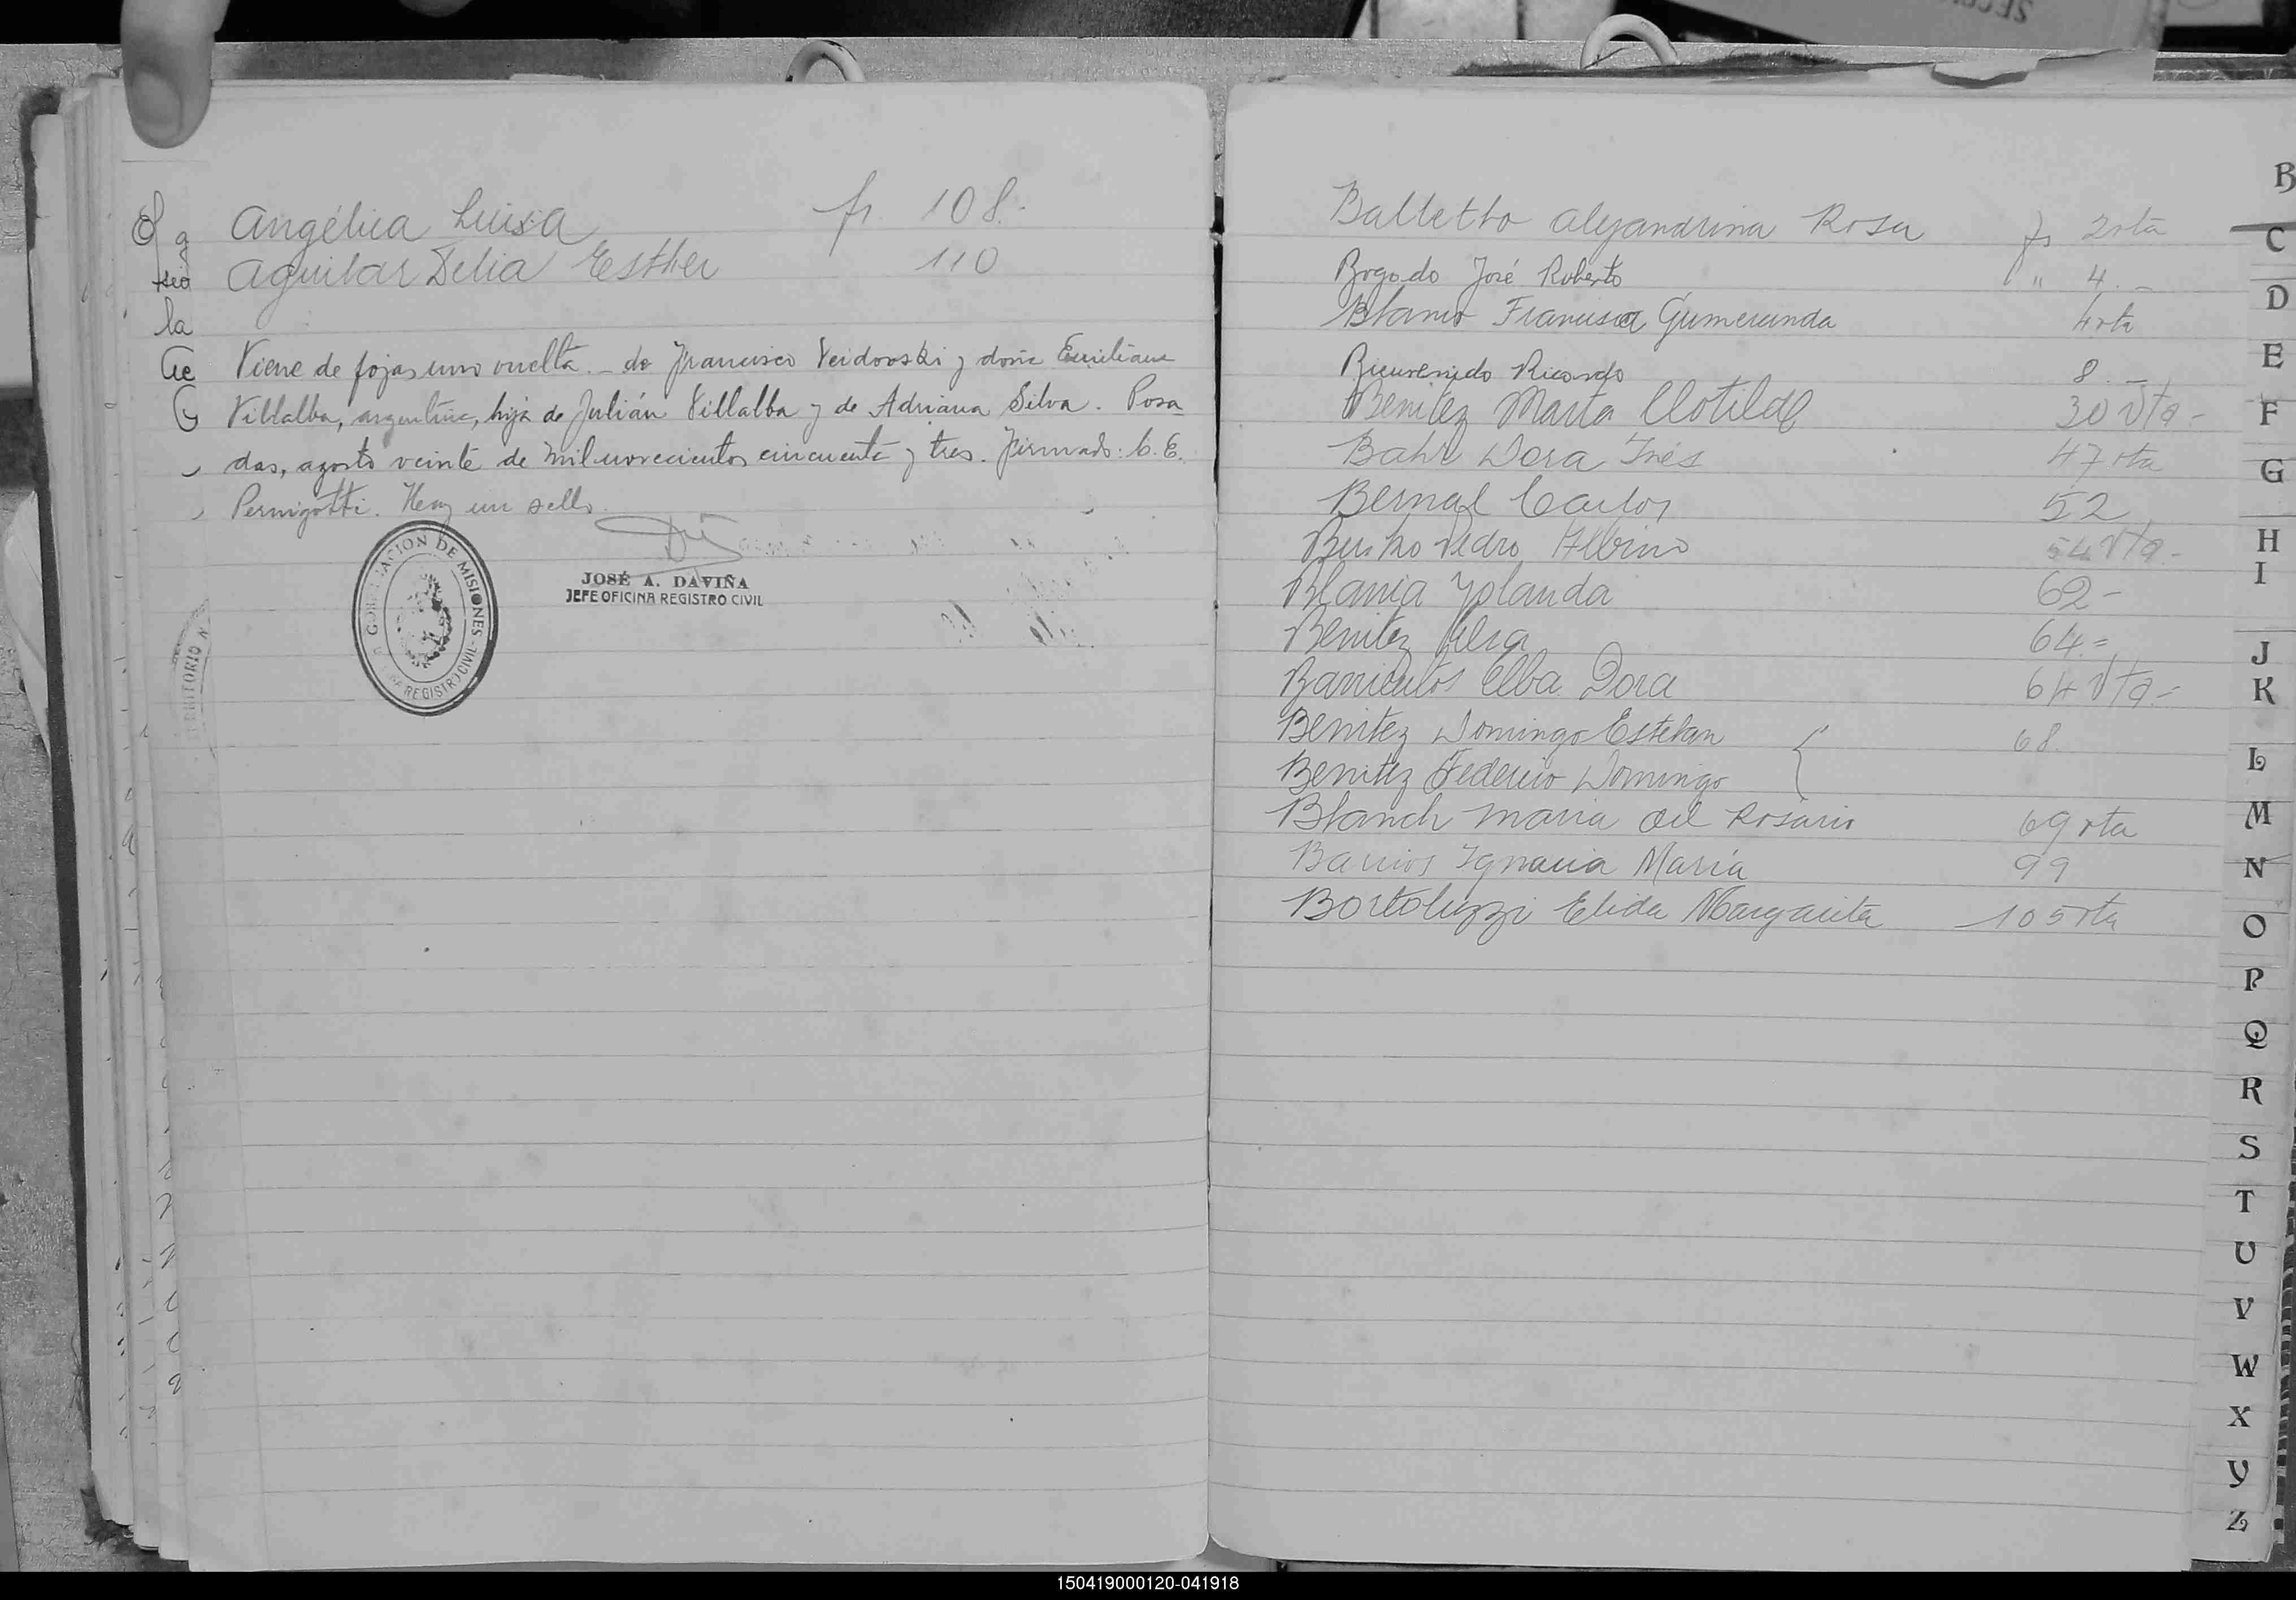 Angélica Luisa fs. 108.-
Aguilar Delia Esther 110
Viene de fojas uno vuelta. - de Francisco Veidovski y doña Emiliana
Villalba, argentina, hija de Julián Villalba y de Adriana Silva. Posa
das, agosto veinte de mil novecientos cincuenta y tres. Firmado: C. E.
Pernigotti. Hay un sello.
GOBERNACION DE MISIONES
REGISTRO CIVIL
JOSÉ A. DAVIÑA
JEFE OFICINA REGISTRO CIVIL
la
TERRITORIO N
Balletto Alejandrina Rosa fs 2 vta
Bogado José Roberto " 4.-
Blanco Francisca Gumercinda 4 vta
Bienvenido Ricardo 8.-
Benitez Marta Clotilde 30 vta-
Bahr Dora Inés 47 vta
Bernal Carlos 52
Pedro Albino 54 vta.-
Blania Yolanda 62-
Benitez 64=
Barrientos Elba Dora 64 vta.-
Benitez Domingo Esteban 68.
Benitez Federico Domingo
Blanch Maria del Rosario 69 vta
Barrios Ignacia María 99
Bortoluzzi Elida Margarita 105 vta
B
C
D
E
F
G
H
I
J
K
L
M
N
O
P
Q
R
S
T
U
V
W
X
Y
Z
150419000120-041918